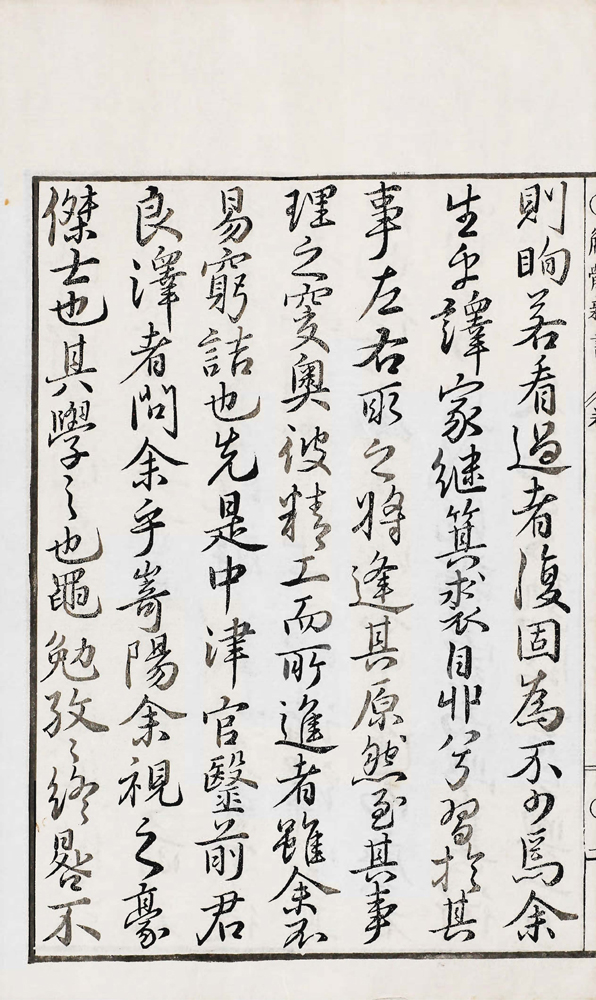 則眴若看過者復固為不少焉余
生乎譯家継箕裘自丱兮習於其
事左右取之将逢其原然至其事
理之窔奥彼精工而所進者雖余不
易窮詰也先是中津官毉前君
良澤者問余乎嵜陽余視之豪
傑士也其學之也黽勉孜〻終晷不